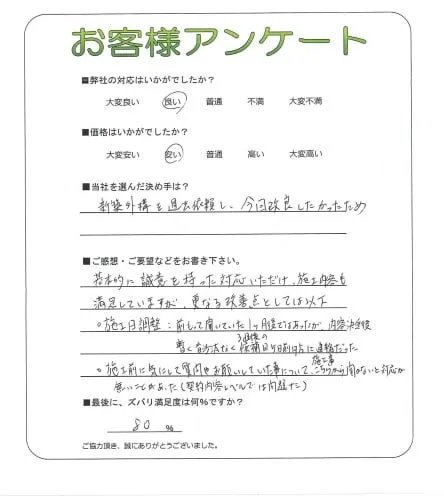 お客様アンケート
■弊社の対応はいかがでしたか?
大変良い 良い 普通 不満 大変不満
■価格はいかがでしたか?
大変安い 安い 普通 高い 大変高い
■当社を選んだ決め手は?
新築外構を過去依頼し、今回改良したかったため
■ご感想・ご要望などをお書き下さい。
基本的に誠意を持った対応いただけ、施工内容も
満足していますが、更なる改善点としては以下
○施工日調整:前もって聞いていた1ヶ月後ではあったが、内容決定後
暫く音沙汰なく候補日の日前に連絡だった
○施工前に気にして質問やお願いしていた事について、こちらから聞かないと対応が
無いことがあった(契約内容レベルでは問題なし)
■最後に、ズバリ満足度は何%ですか?
80 %
ご協力頂き、誠にありがとうございました。